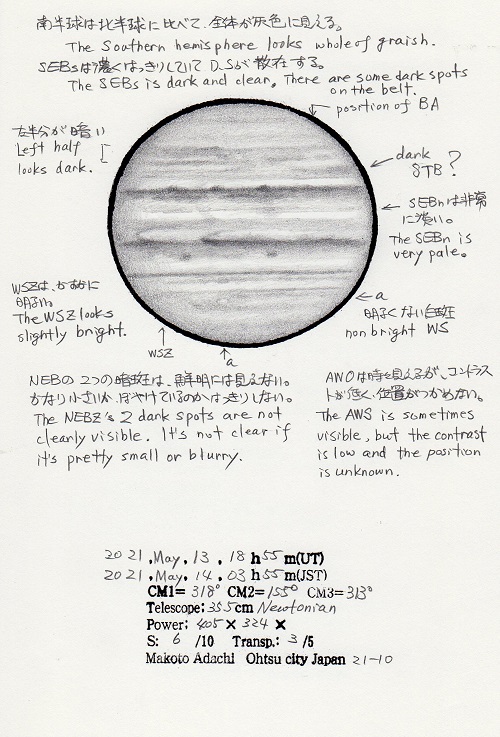 南半球は北半球に比べて、全体が灰色に見える。
The Southern hemisphere looks whole of graish.
SEBsは濃くはっきりしていて D.Sが散在する。
The SEBs is dark and clear. There are some dark spots
on the belt.
position of BA
左半分が暗い
Left half
looks dark.
dark
STB?
SEBnは非常
に淡い。
The SEBn is
very pale。
WSZは、かすかに
明るい。
The WSZ looks
slightly bright.
WSZ
a
a
明るくない白斑
non bright WS
NEBの2つの暗斑は、鮮明には見えない。
かなり小さいか、ぼやけているのかはっきりしない。
The NEBZ's 2 dark spots are not
clearly visible. It's not clear if
it's pretty small or blurry.
AWOは時々見えるが、コントラス
トが低く、位置がつかめない。
The AWS is sometimes
visible, but the contrast
is low and the position
is unknown.
2021, May, 13, 18 h 55 m(UT)
2021, May, 14, 03 h 55 m(JST)
CM1= 318° CM2= 155° CM3= 313°
Telescope: 35.5cm Newtonian
Power: 405 × 324 ×
S: 6 /10 Transp.: 3 /5
Makoto Adachi Ohtsu city Japan 21-10